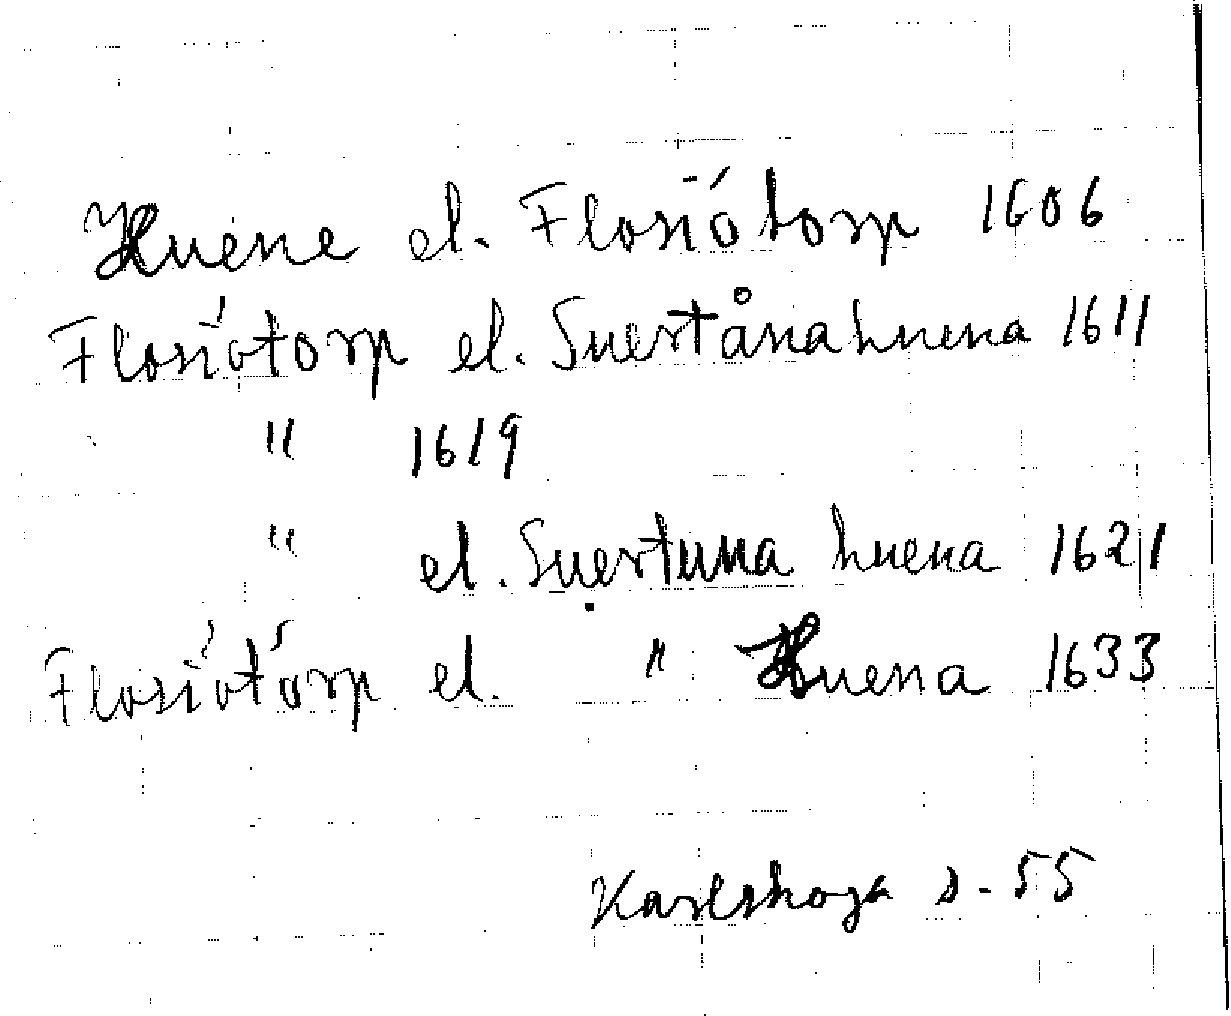 Huene el. Flosiótorp 1606
Flosiótorp el. Suertånahuena 1611
" 1619
" el. Suertuna huena 1621
Flosiótórp el. " Huena 1633
Karlskoga s. 55